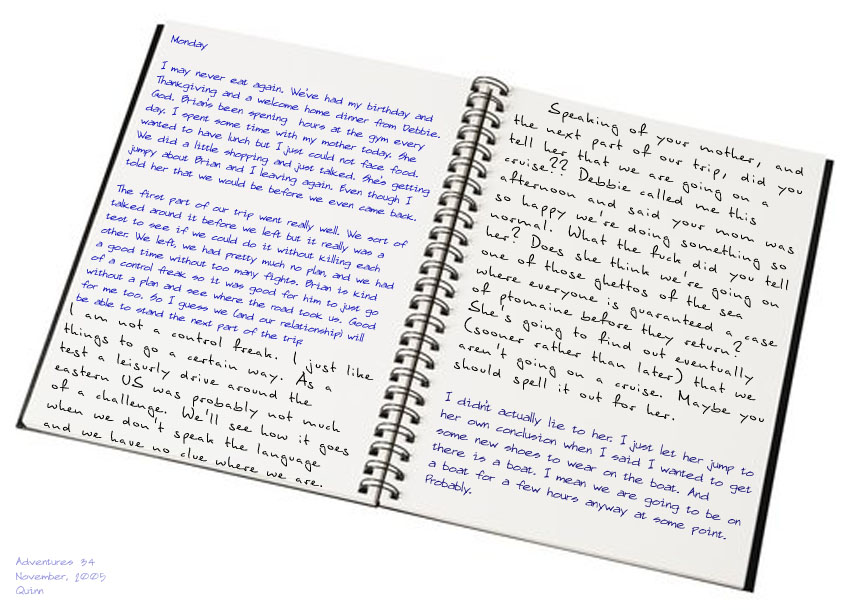 Monday
I may never eat again. We've had my birthday and
Thanksgiving and a welcome home dinner from Debbie.
God. Brian's been spending hours at the gym every
day. I spent some time with my mother today. She
wanted to have lunch but I just could not face food.
We did a little shopping and just talked. She's getting
jumpy about Brian and I leaving again. Even though I
told her that we would be before we even came back.
The first part of our trip went really well. We sort of
talked around it before we left but it really was a
test to see if we could do it without killing each
other. We left, we had pretty much no plan, and we had
a good time without too many fights. Brian is kind
of a control freak so it was good for him to just go
without a plan and see where the road took us. Good
for me too. So I guess we (and our relationship) will
be able to stand the next part of the trip.
I am not a control freak. I just like
things to go a certain way. As a
test a leisurly drive around the
eastern US was probably not much
of a challenge. We'll see how it goes
when we don't speak the language
and we have no clue where we are.
Speaking of your mother, and
the next part of our trip, did you
tell her that we are going on a
cruise?? Debbie called me this
afternoon and said your mom was
so happy we're doing something so
normal. What the fuck did you tell
her? Does she think we're going on
one of those ghettos of the sea
where everyone is guaranteed a case
of ptomaine before they return?
She's going to find out eventually
(sooner rather than later) that we
aren't going on a cruise. Maybe you
should spell it out for her.
I didn't actually lie to her. I just let her jump to
her own conclusion when I said I wanted to get
some new shoes to wear on the boat. And
there is a boat. I mean we are going to be on
a boat for a few hours anyway at some point.
Probably.
Adventures 34
November, 2005
Quinn